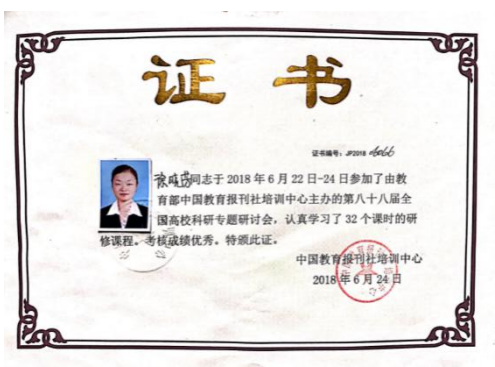 证 书
证书编号：JP2018
同志于 2018 年 6 月 22 日-24 日参加了由教
育部中国教育报刊社培训中心主办的第八十八届全
国高校科研专题研讨会，认真学习了 32 个课时的研
修课程。考核成绩优秀。特颁此证。
中国教育报刊社培训中心
2018 年 6 月 24 日